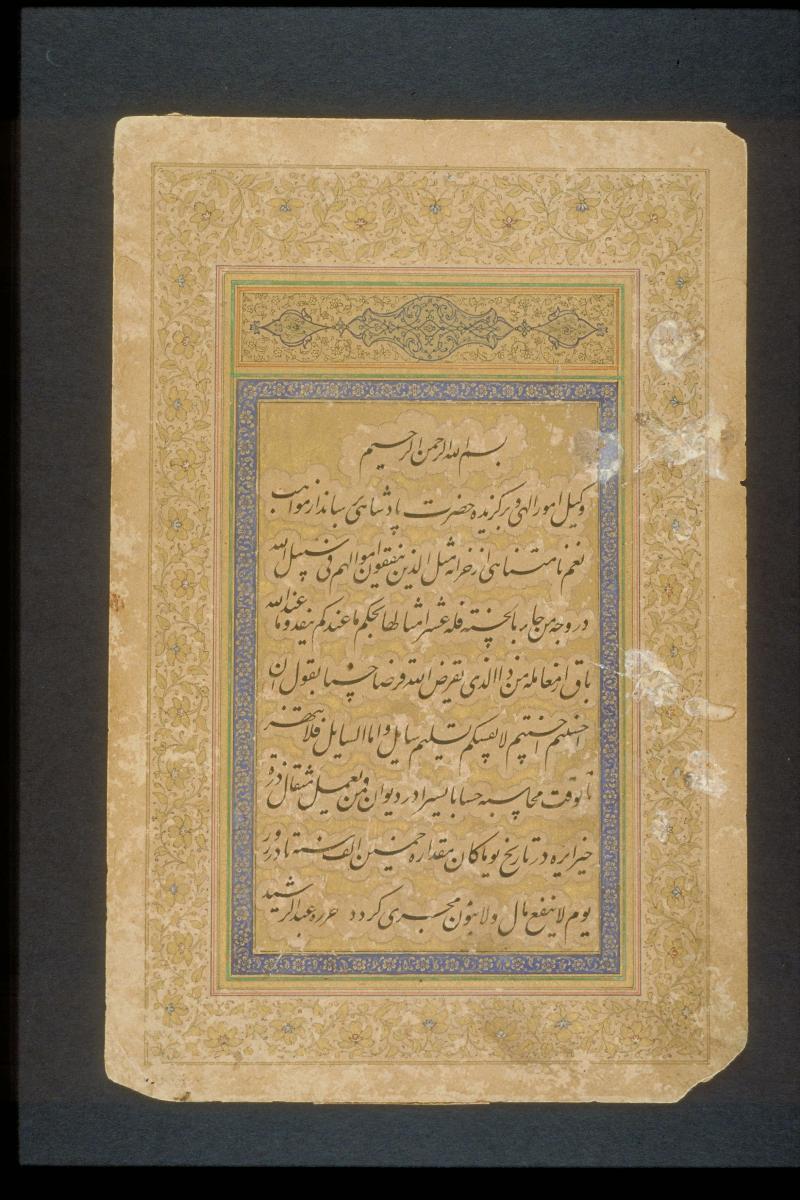 بسم الله الرحمن الرحیم
وکیل امور الهی و برگزیده حضرت پادشاهی بداند از مواهب
نعم نامتناهی از خزانه مثل الذین ینفقون اموالهم فی سبیل الله
در وجه من جاء بالحسنة فله عشر امثالها بحکم ما عندکم ینفد وما عند الله
باق از معامله من ذا الذی یقرض الله قرضا حسنا بقول ان
احسنتم احسنتم لانفسکم تسلیم سایل واما السایل فلا تنهر
تا بوقت محاسبه حسابا یسیرا در دیوان ومن یعمل مثقال ذرة
خیرا یره در تاریخ یوما کان مقداره خمسین الف سنة تا در روز
یوم لا ینفع مال ولا بنون مجری گردد حرره عبد الرشید